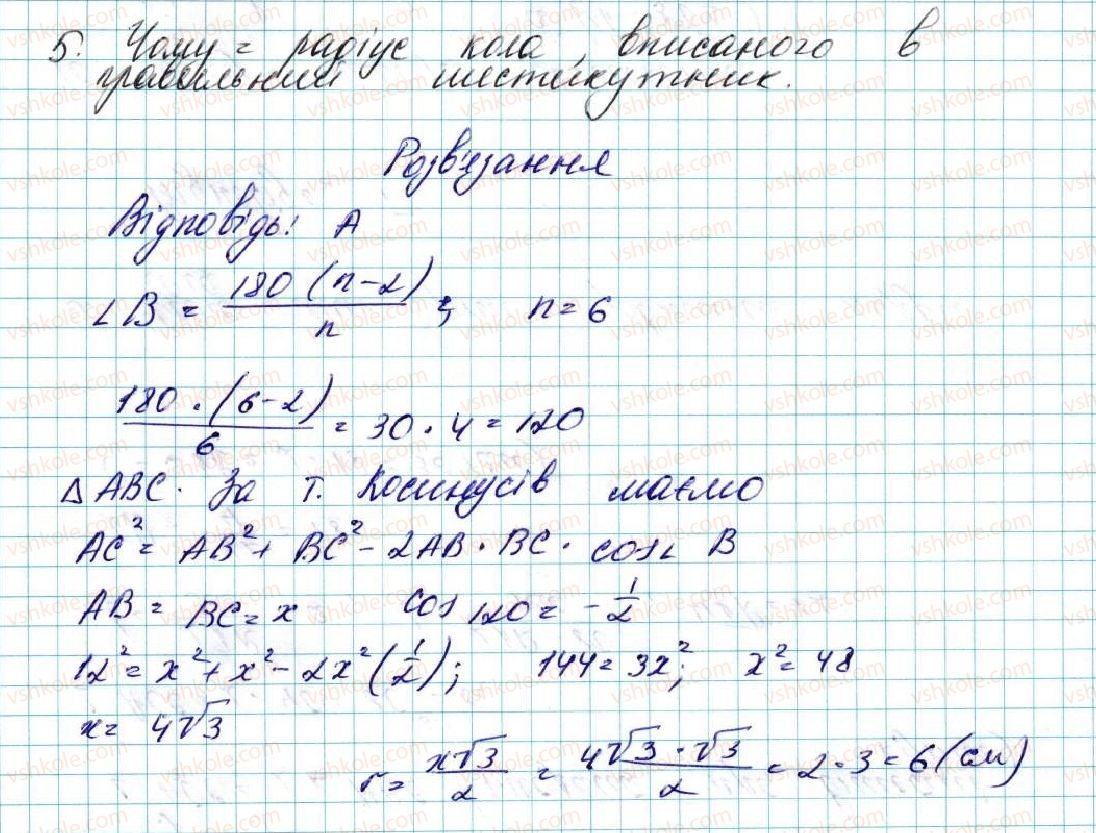 5. Чому = радіус кола, вписаного в
правильний шестикутник.
Розв'язання
Відповідь: А
∠B = 180 (n-2) / n ; n = 6
180 · (6-2) / 6 = 30 · 4 = 120
Δ ABC. За т. Косинусів маємо
AC² = AB² + BC² - 2AB · BC · cos∠ B
AB = BC = x cos 120 = - 1/2
12² = x² + x² - 2x² (1/2); 144 = 3x²; x² = 48
x = 4√3
r = x√3 / 2 = 4√3 · √3 / 2 = 2 · 3 = 6 (см)